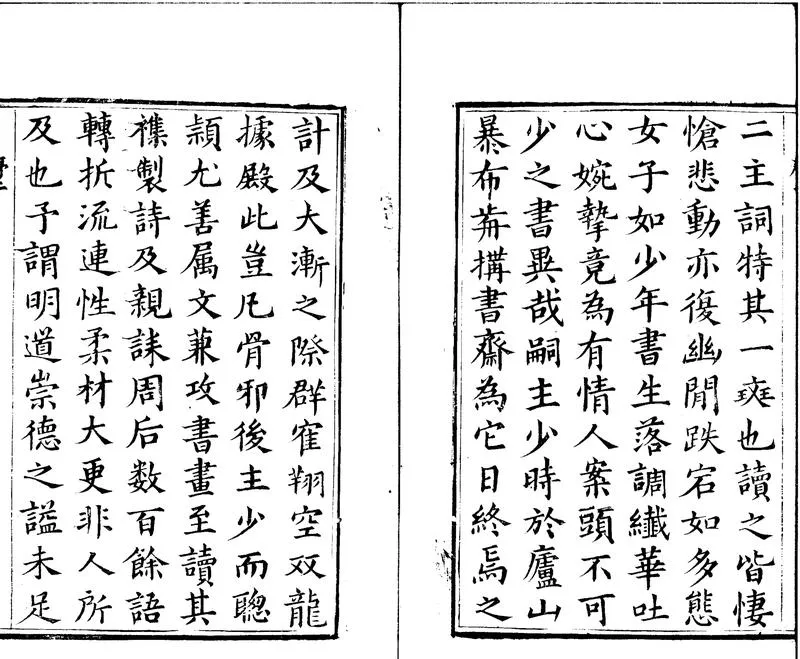 二主詞特其一斑也讀之皆悽
愴悲動亦復幽閒跌宕如多態
女子如少年書生落調纖華吐
心婉摯竟為有情人案頭不可
少之書異哉嗣主少時於廬山
暴布前搆書齋為它日終焉之
計及大漸之際群寉翔空双龍
據殿此豈凡骨邪後主少而聰
頴尤善属文兼攻書畫至讀其
襍製詩及親誄周后数百餘語
轉折流連性柔材大更非人所
及也予謂明道崇德之謚未足